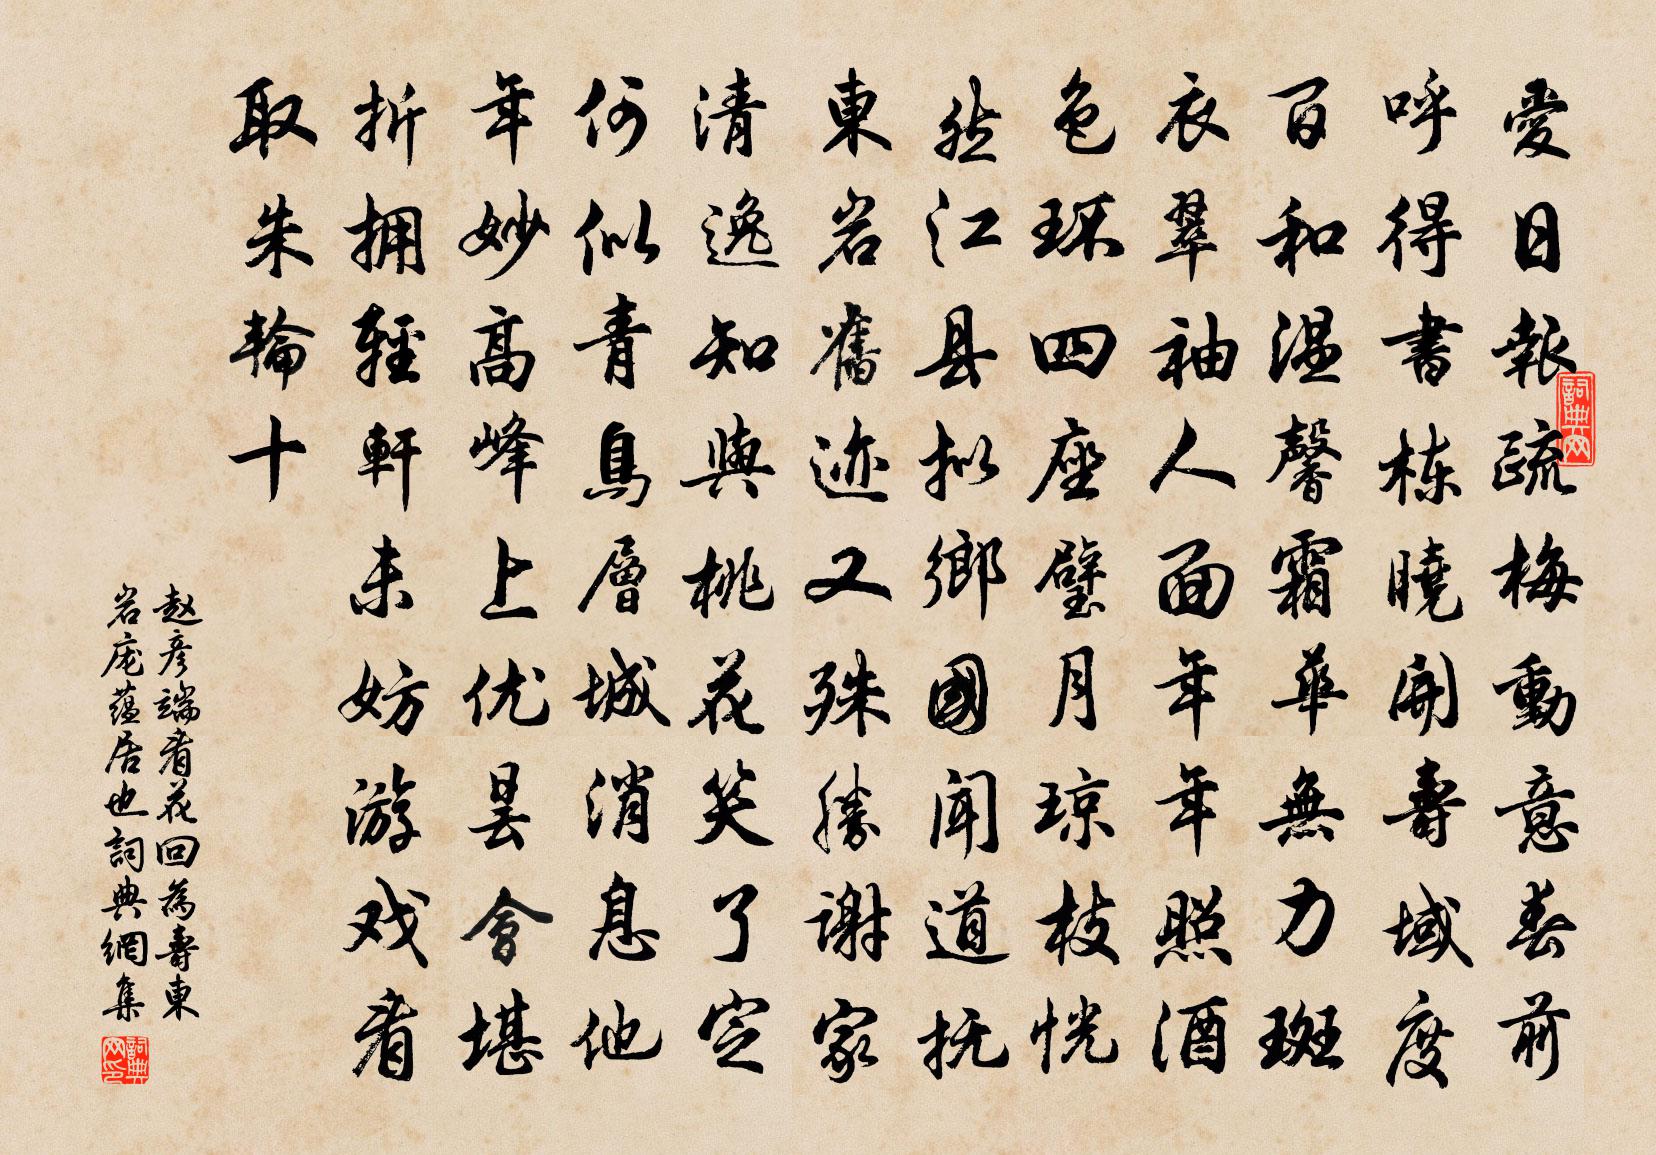 愛日報疏梅動意春前
呼得書栋曉開壽域度
百和温馨霜華無力斑
衣翠袖人面年年照酒
色环四座璧月琼枝恍
然江县拟鄉國闻道抚
東岩舊迹又殊勝谢家
清逸知與桃花笑了定
何似青鳥層城消息他
年妙高峰上优昙會堪
折拥輕軒未妨游戏看
取朱輪十
赵彦端看花回為壽東
岩庵蕴居也詞典網集
詞典网
詞典网印